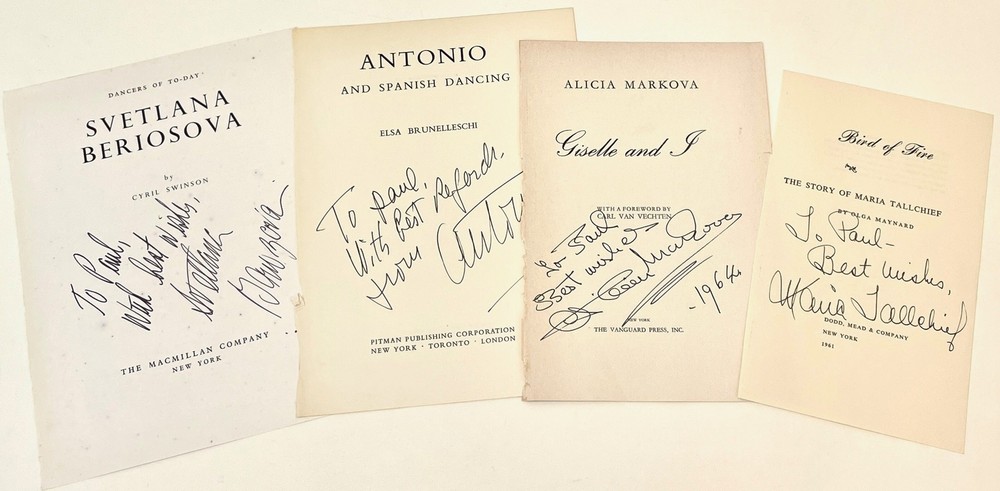 DANCERS OF TO-DAY
SVETLANA
BERIOSOVA
by
CYRIL SWINSON
To Paul,
With best wishes,
Svetlana
Beriosova
THE MACMILLAN COMPANY
NEW YORK
ANTONIO
AND SPANISH DANCING
ELSA BRUNELLESCHI
To Paul,
With best Regards,
from Antonio
PITMAN PUBLISHING CORPORATION
NEW YORK · TORONTO · LONDON
ALICIA MARKOVA
Giselle and I
WITH A FOREWORD BY
CARL VAN VECHTEN
To Paul
Best wishes
Alicia Markova
-1964
NEW YORK
THE VANGUARD PRESS, INC.
Bird of Fire
THE STORY OF MARIA TALLCHIEF
BY OLGA MAYNARD
To Paul-
Best wishes,
Maria Tallchief
DODD, MEAD & COMPANY
NEW YORK
1961